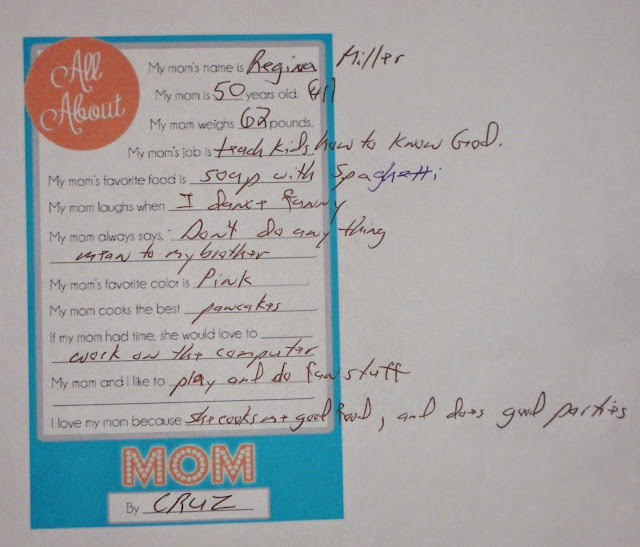 All
About
My mom's name is Regina Miller
My mom is 50 years old. (41)
My mom weighs 62 pounds.
My mom's job is teach kids how to know God.
My mom's favorite food is soup with Spaghetti
My mom laughs when I dance funny
My mom always says, "Don't do any thing
mean to my brother
My mom's favorite color is Pink
My mom cooks the best pancakes
If my mom had time, she would love to
work on the computer
My mom and I like to play and do fun stuff
I love my mom because she cooks me good food, and does good parties
MOM
By CRUZ